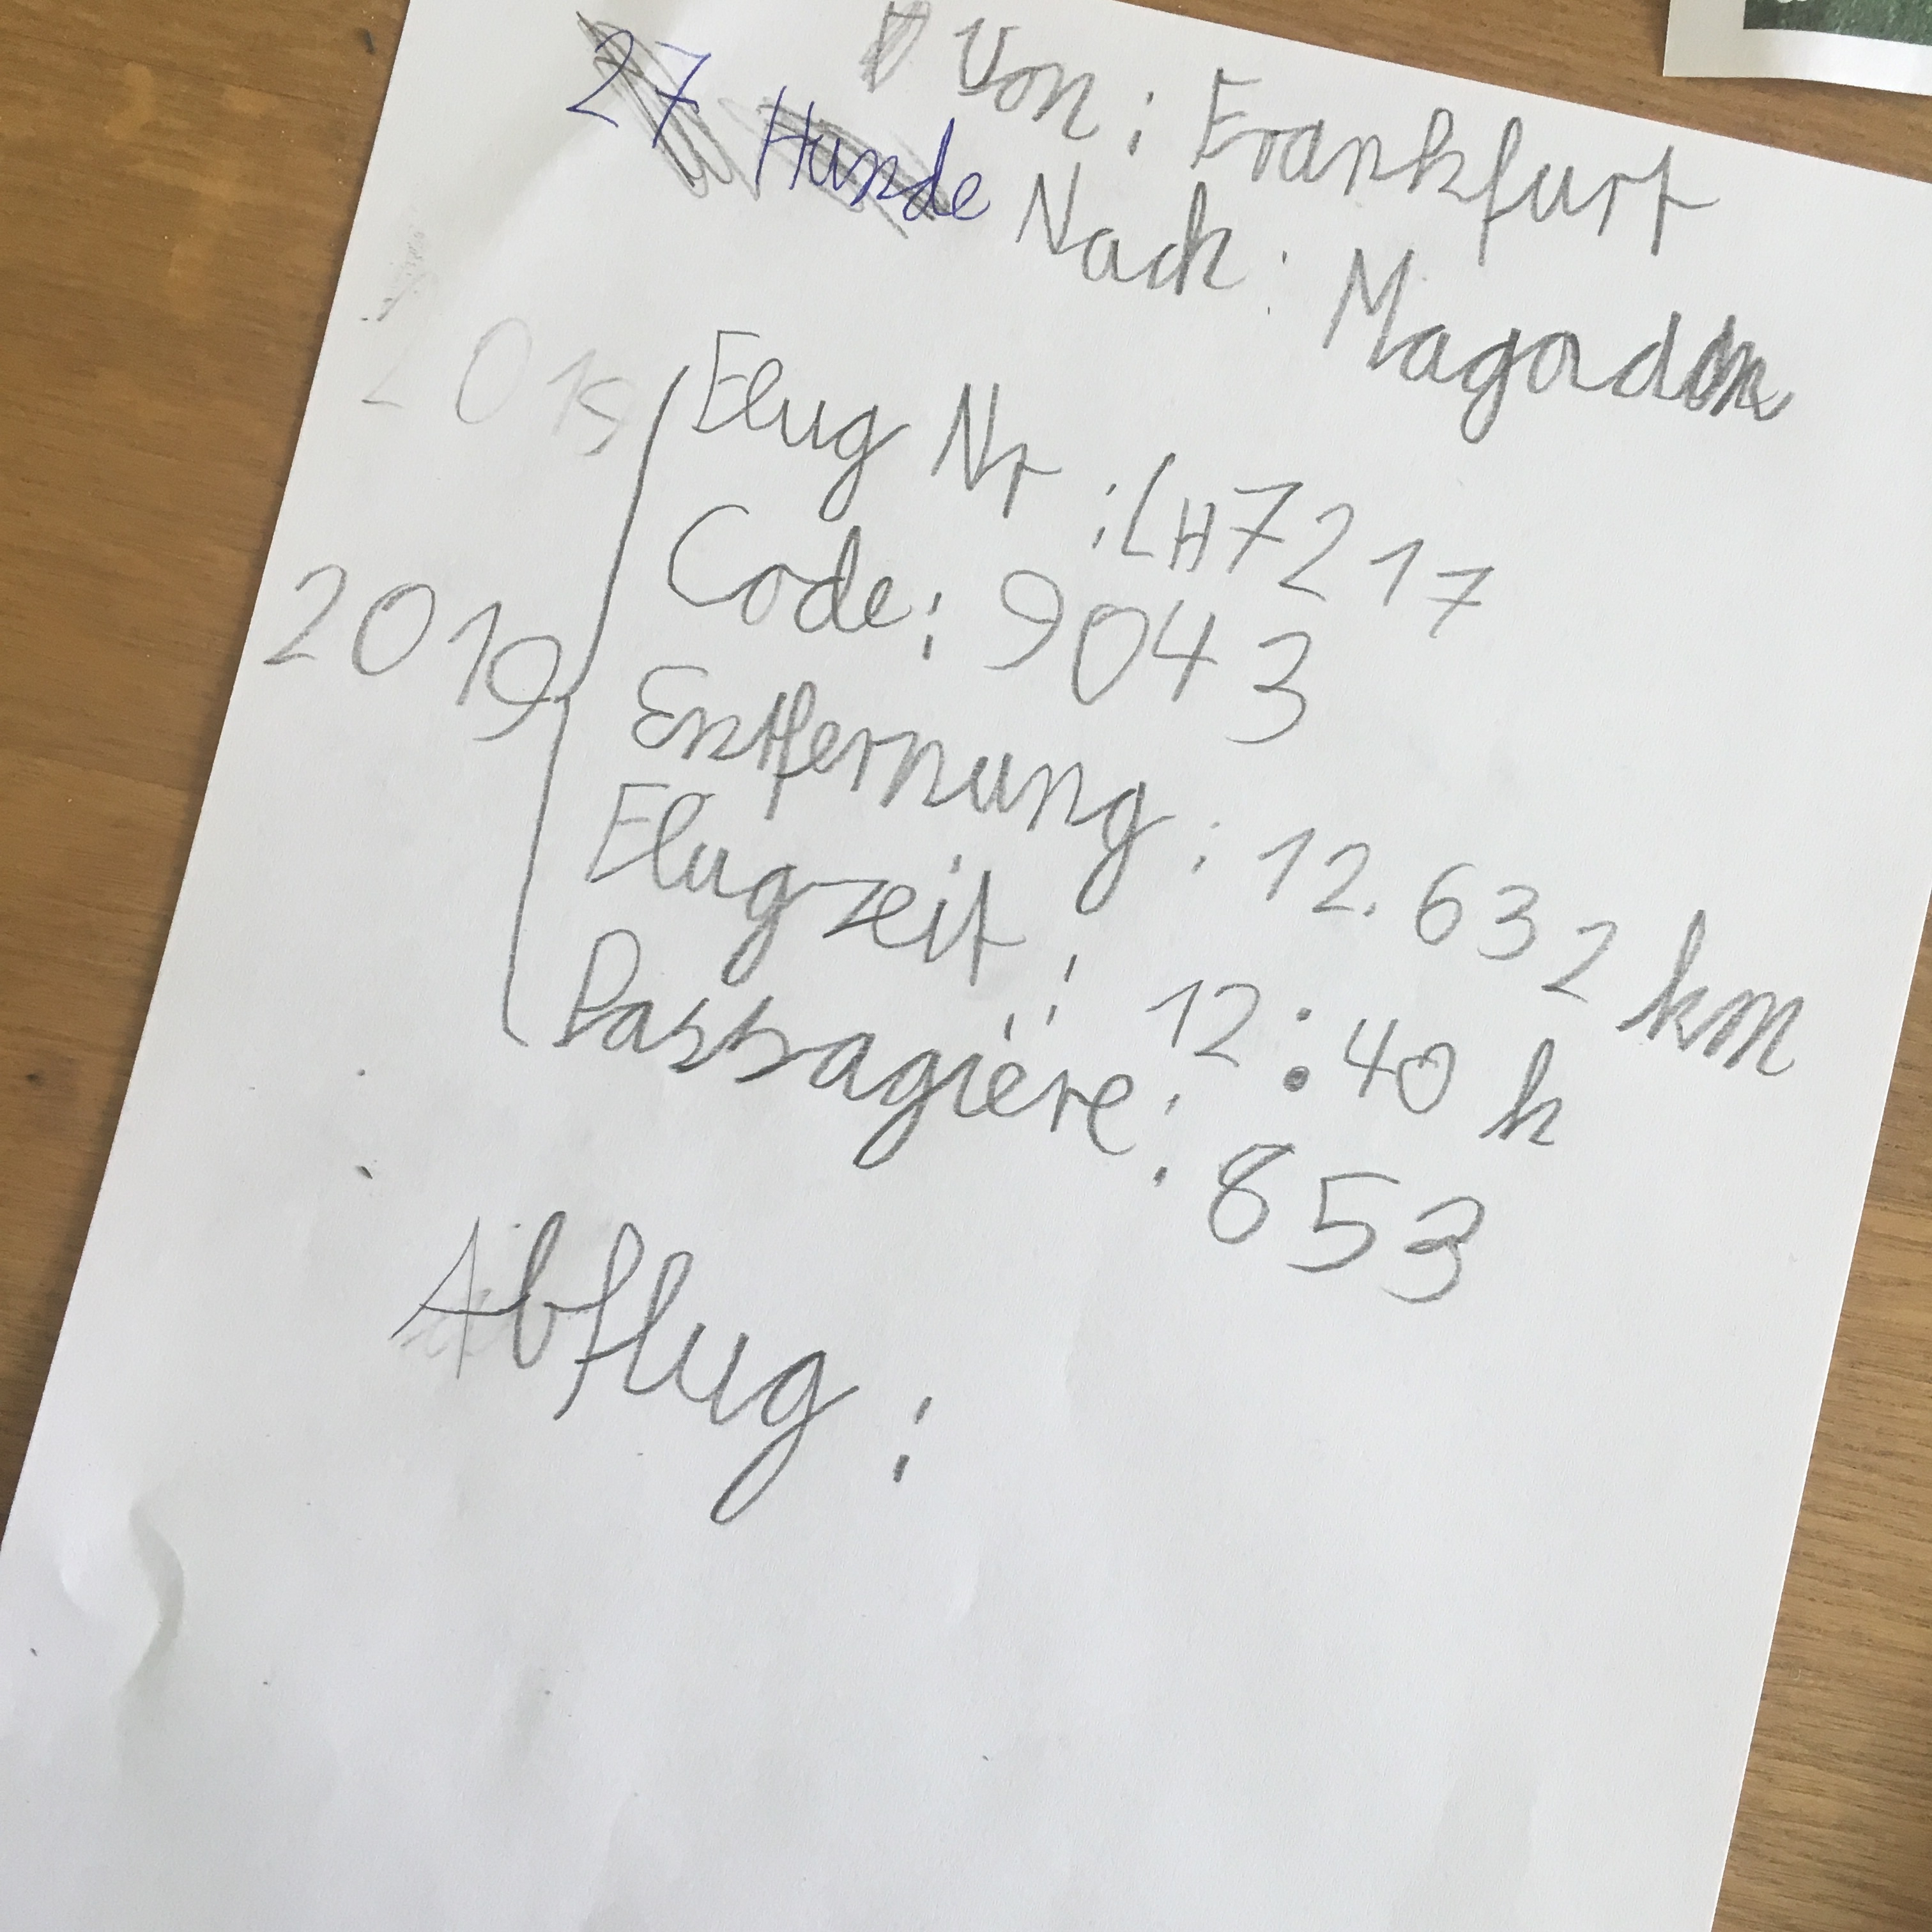 Von: Frankfurt
27 Hunde
Nach: Magadan
2019
Flug Nr: LH7217
Code: 9043
2019
Entfernung: 12.632 km
Flugzeit: 12:40 h
Passagiere: 853
Abflug: